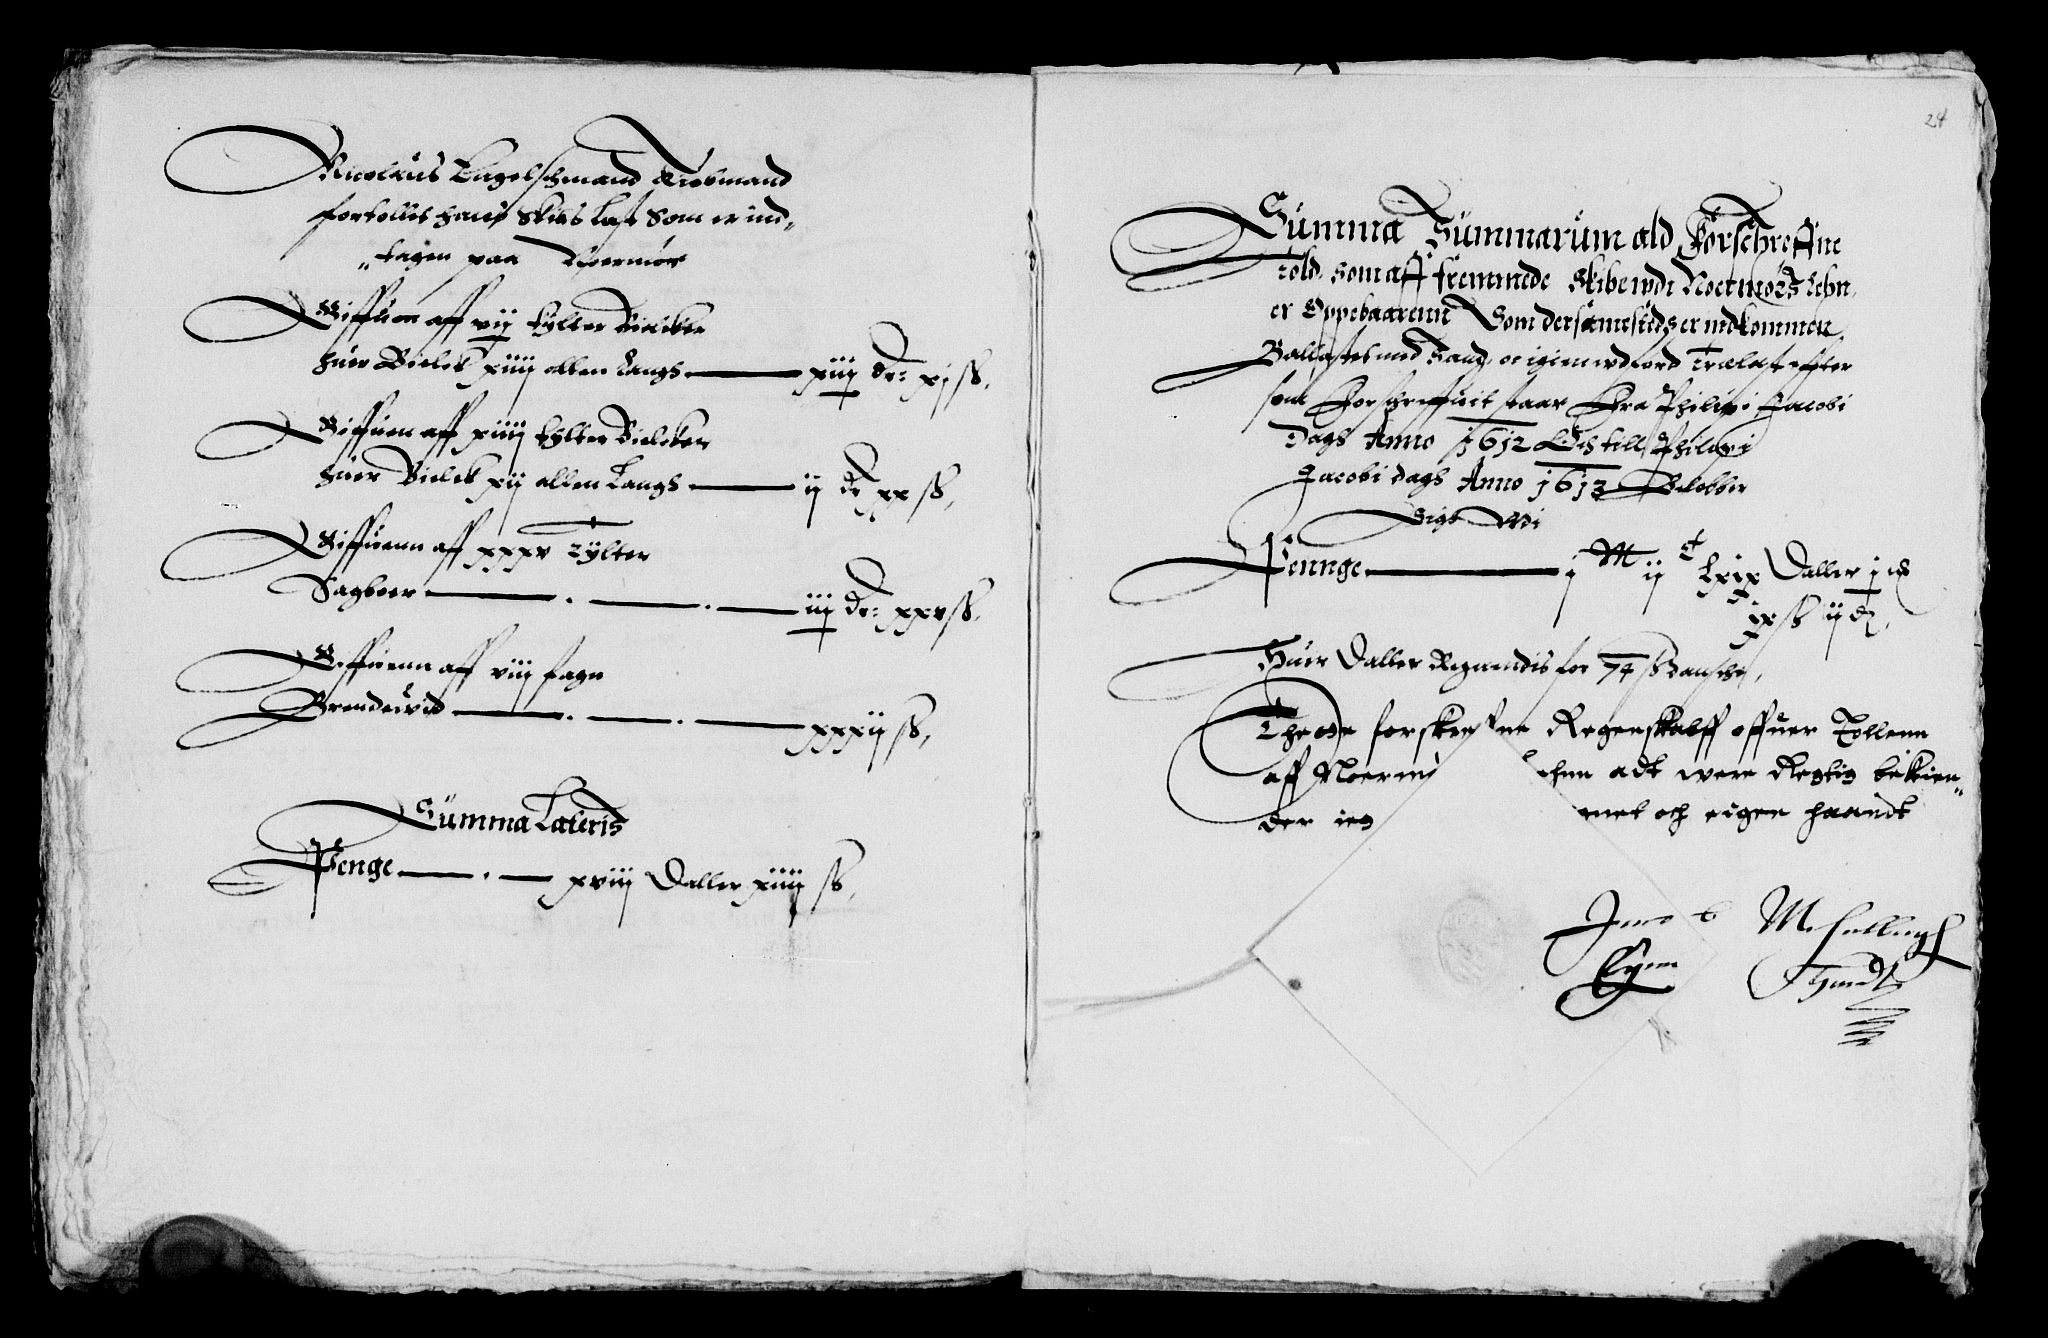 Nicolaus Engelschmand
fortollet hans Skibs Last Som er ind„
„tagen paa Noermør
Giffuen aff vij tylter Bielcker
huer Bielck xiiij allen Langs — xiij dr: xj ß,
Giffuen aff xiiij tylter Bielcker
huer Bielck xij allen Langs — ij dr xx ß,
Giffuenn aff xxxv Tylter
Sagboer — iij dr: xxv ß,
Giffuenn aff viij fagn
Brendeuid — xxxij ß,
Summa Lateris
Penge — xviij Daller xiiij ß,
24
Summa Summarum ald Forschreffne
told, som aff fremmede Skibe wdi Noermørs Lehn,
er Oppebaarenn Som dersammesteds er indkommen
Ballastes med Sand, oc igien wdførd Trælast effter
som Forschreffuit staar Fra Philippi Jacobi
Dags Anno 1612 Och till Philippi
Jacobi dags Anno 1613 Beløbber
Sigt wdi
Pennge — j M ij C Lxix Daller j
ix ß ij d,
Huer Daller Regnendis for 74 ß Dansche,
Thette forskreffne Regenskabff offuer Tollenn
aff Noerm ehnn adt were Regtig bekien„
der ieg met och eigen haandt
Eyen Handt